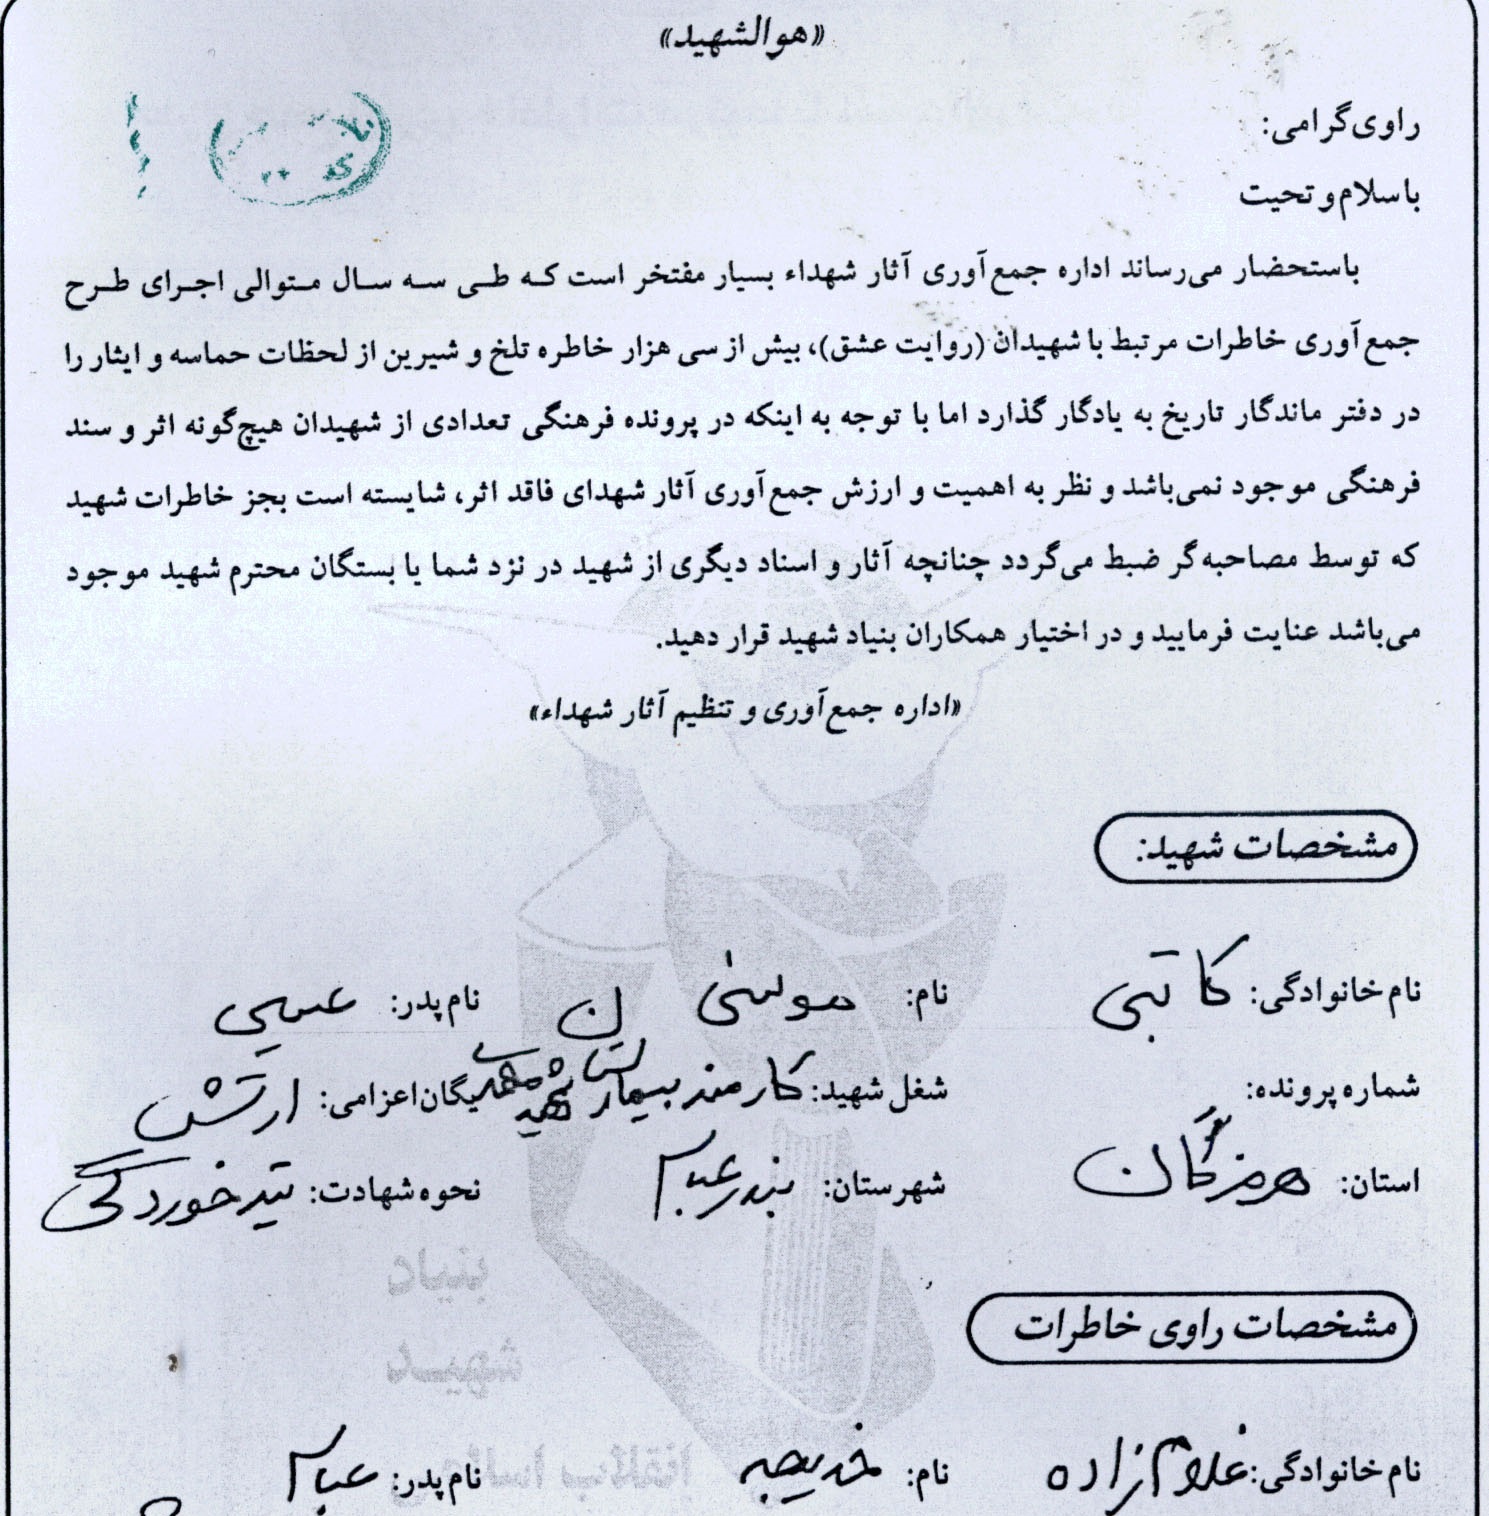 «هوالشهید»
راوی‌گرامی:
باسلام و تحیت
باستحضار می‌رساند اداره جمع‌آوری آثار شهداء بسیار مفتخر است که طی سه سال متوالی اجرای طرح
جمع‌آوری خاطرات مرتبط با شهیدان (روایت عشق)، بیش از سی هزار خاطره تلخ و شیرین از لحظات حماسه و ایثار را
در دفتر ماندگار تاریخ به یادگار گذارد اما با توجه به اینکه در پرونده فرهنگی تعدادی از شهیدان هیچ‌گونه اثر و سند
فرهنگی موجود نمی‌باشد و نظر به اهمیت و ارزش جمع‌آوری آثار شهدای فاقد اثر، شایسته است بجز خاطرات شهید
که توسط مصاحبه‌گر ضبط می‌گردد چنانچه آثار و اسناد دیگری از شهید در نزد شما یا بستگان محترم شهید موجود
می‌باشد عنایت فرمایید و در اختیار همکاران بنیاد شهید قرار دهید.
«اداره جمع‌آوری و تنظیم آثار شهداء»
مشخصات شهید:
نام خانوادگی: کاتبی نام: موسی نام پدر: عیسی
شماره پرونده: شغل شهید: کارمند بیمارستان شهید محمدی یگان اعزامی: ارتش
استان: هرمزگان شهرستان: بندرعباس نحوه شهادت: تیرخوردگی
بنیاد
شهید
انقلاب اسلامی
مشخصات راوی خاطرات
نام خانوادگی: غلام زاده نام: خدیجه نام پدر: عباس